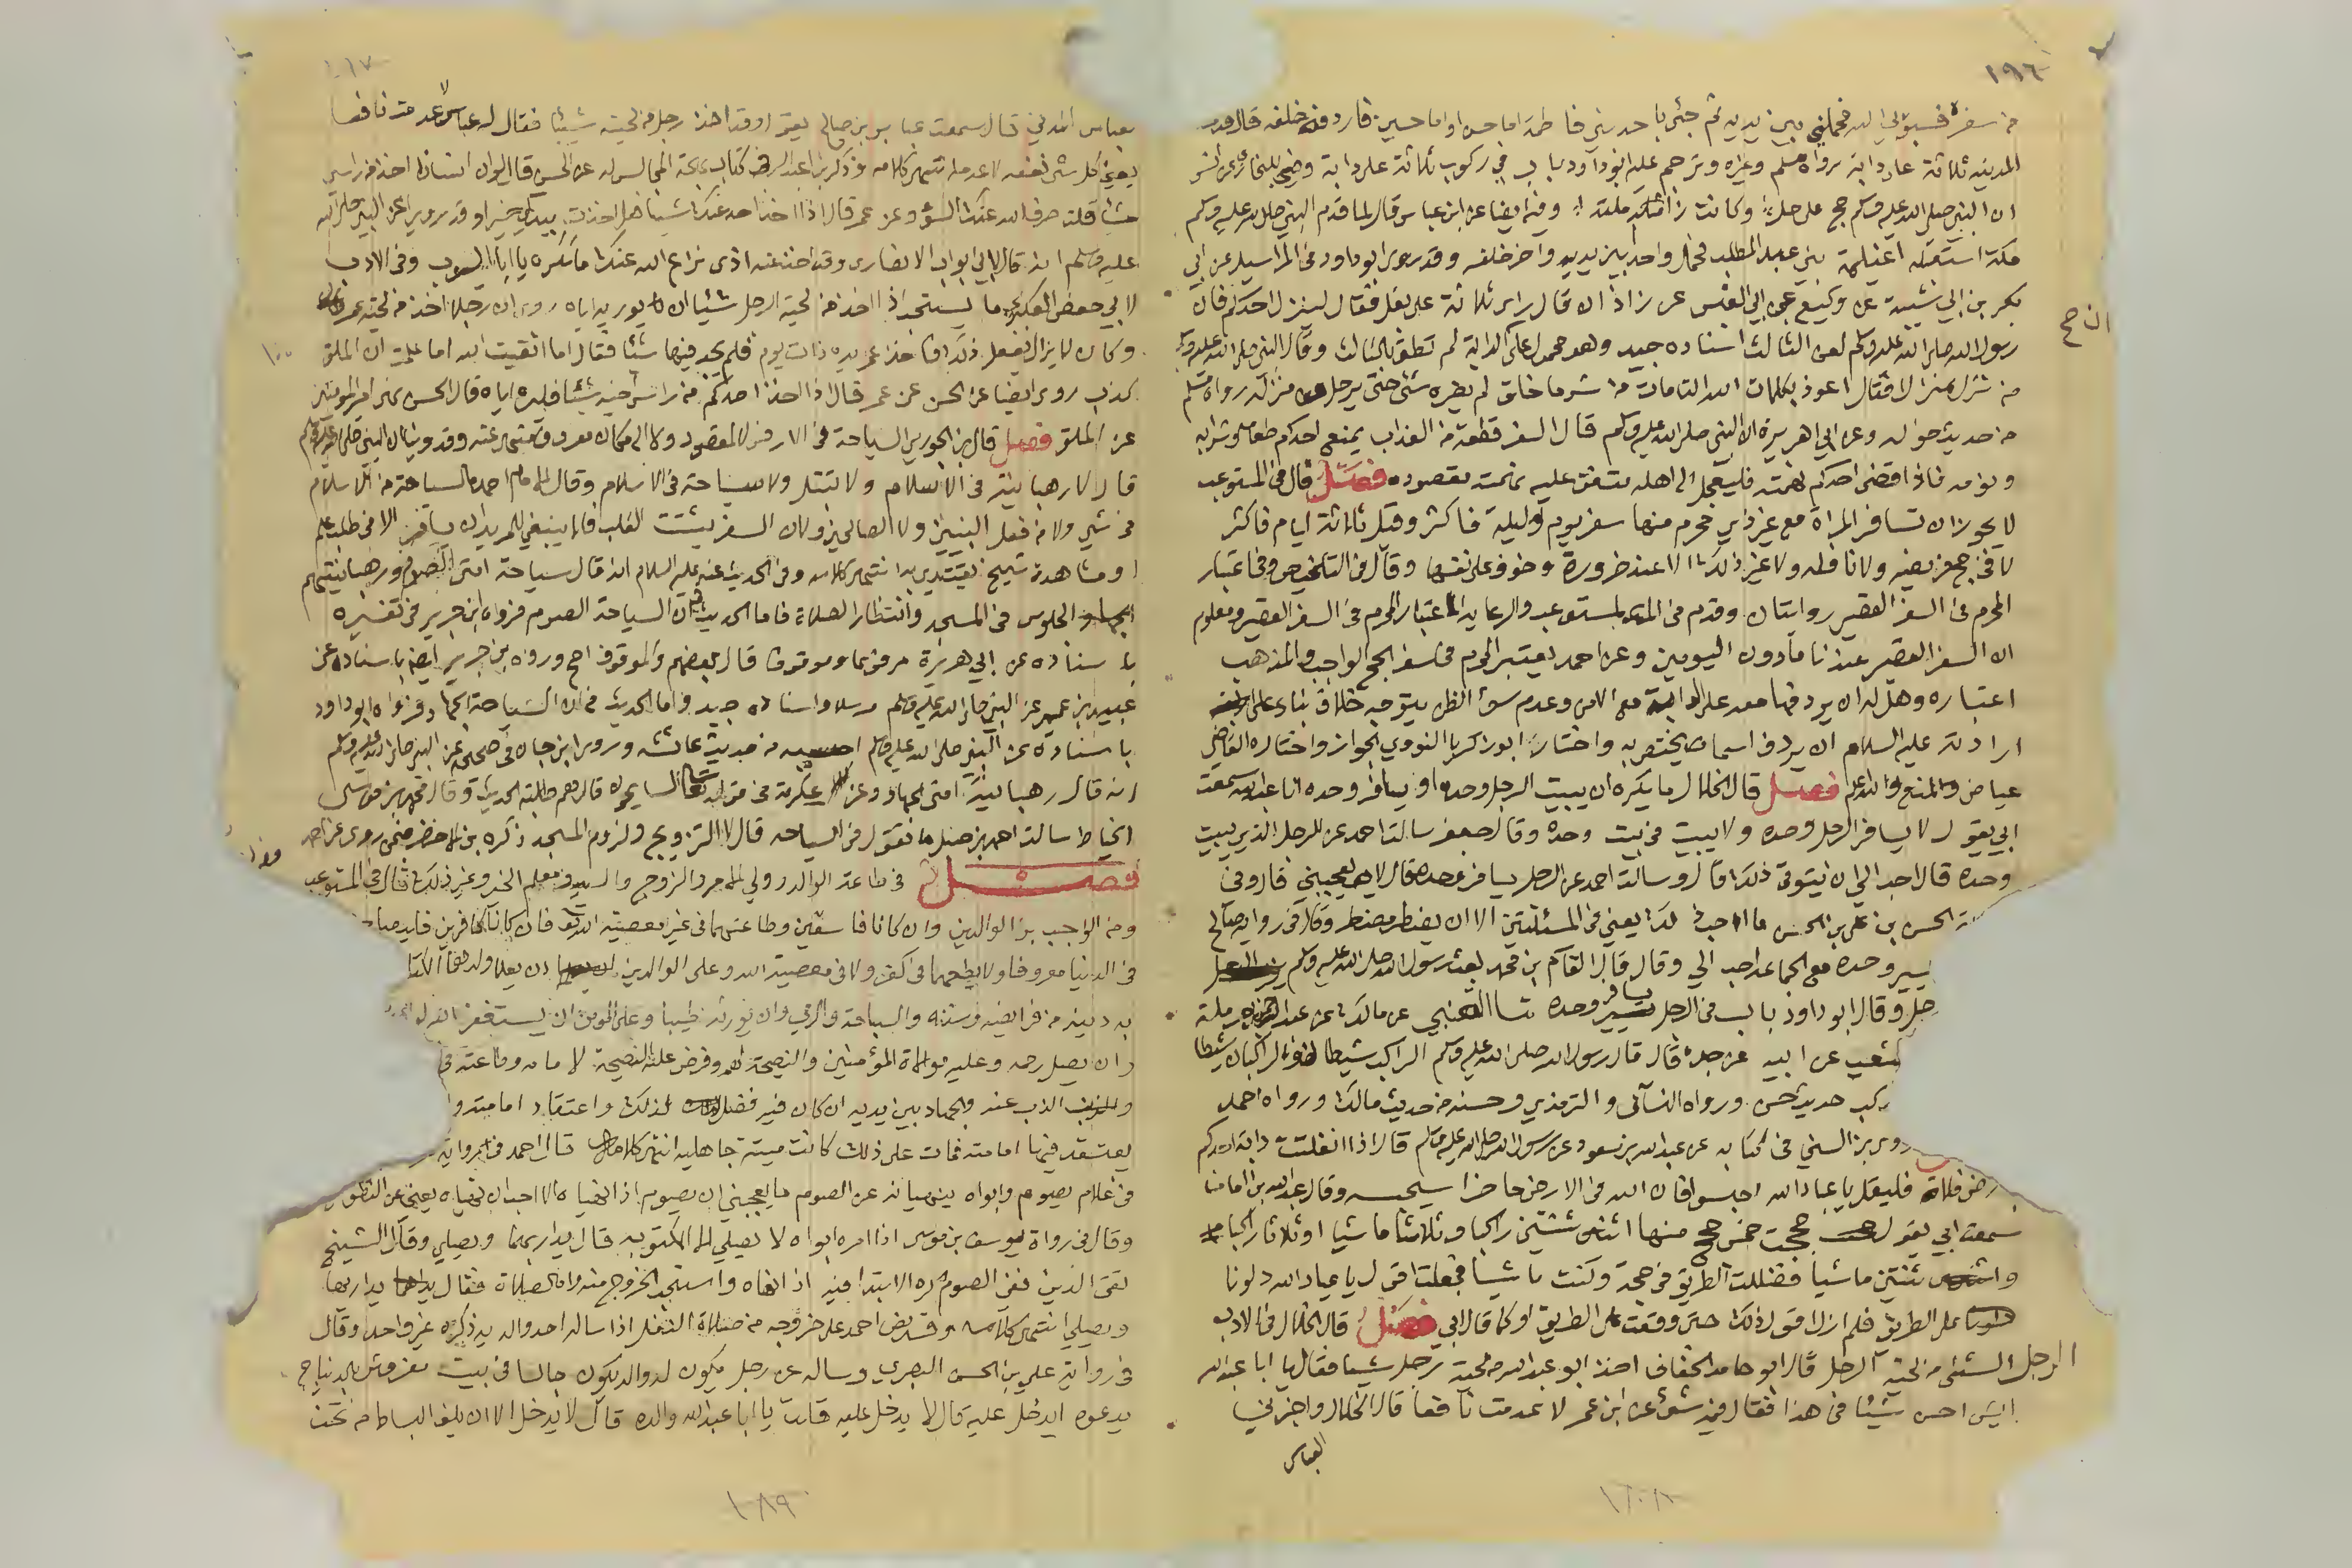 ١٩٦
من سفره فسبق بي اليه فحملني بين يديه ثم جئ باحد بني فاطمة اما حسن او اما حسين فاردفه خلفه قال فدخلنا
المدينة ثلاثة على دابة رواه مسلم وغيره وترجم عليه ابو داود باب في ركوب ثلاثة على دابة وفي البخاري عن انس
ان النبي صلى الله عليه وسلم حج على رحل وكانت زاملته وفيه ايضا عن ابن عباس قال لما قدم النبي صلى الله عليه وسلم
مكة استقبله اغيلمة بني عبد المطلب فحمل واحدا بين يديه واخر خلفه وقد روى ابو داود في المراسيل عن ابي
بكر بن ابي شيبة عن وكيع عن ابي العنبس عن زاذان قال راى ثلاثة على بغل فقال لينزل احدكم فان
رسول الله صلى الله عليه وسلم لعن الثالث اسناده جيد وهو محمول على ان الدابة لم تطق بالثالث وقال النبي صلى الله عليه وسلم
من نزل منزلا فقال اعوذ بكلمات الله التامات من شر ما خلق لم يضره شئ حتى يرحل من منزله رواه مسلم
من حديث خولة وعن ابي هريرة ان النبي صلى الله عليه وسلم قال السفر قطعة من العذاب يمنع احدكم طعامه وشرابه
ونومه فاذا قضى احدكم نهمته فليعجل الى اهله متفق عليه نهمته مقصوده فصل قال في المستوعب
لا يجوز ان تسافر المراة مع غير ذي محرم منها سفر يوم وليلة فاكثر وقيل ثلاثة ايام فاكثر
لا في حج فريضة ولا نافلة ولا غير ذلك الا عند ضرورة وخوف على نفسها وقال في التلخيص وفي اعتبار
المحرم في السفر القصير روايتان وقدم في المستوعب والرعاية اعتبار المحرم في السفر القصير ومعلوم
ان السفر القصير عندنا ما دون اليومين وعن احمد يعتبر المحرم في سفر الحج الواجب والمذهب
اعتباره وهل له ان يردفها معه على الدابة مع الامن وعدم سوء الظن يتوجه خلاف بناء على ان
ارادته عليه السلام ان يردف اسما يختص به واختار ابو زكريا النووي الجواز واختار القاضي
عياض المنع والله اعلم فصل قال الخلال ما يكره ان يبيت الرجل وحده او يسافر وحده انا عبد الله سمعت
ابي يقول لا يسافر الرجل وحده ولا يبيت في بيت وحده وقال جعفر سالت احمد عن الرجل الذي يبيت
وحده قال احب الي ان يتوقى ذلك قال وسالت احمد عن الرجل يسافر وحده قال لا يعجبني قاروفي
الحسن بن علي بن الحسن ما احب ذلك يعني في المسئلتين الا ان يضطر مضطر وقال في رواية صالح
يسير وحده مع الجماعة احب الي وقال قال القاسم بن محمد بعث رسول الله صلى الله عليه وسلم
وقال ابو داود باب في الرجل يسافر وحده ثنا القعنبي عن مالك عن عبد الرحمن بن حرملة
شعيب عن ابيه عن جده قال قال رسول الله صلى الله عليه وسلم الراكب شيطان والراكبان شيطا
ركب حديث حسن ورواه النسائي والترمذي وحسنه من حديث مالك ورواه احمد
روى بن السني في كتابه عن عبد الله بن مسعود عن رسول الله صلى الله عليه وسلم قال اذا انفلتت دابة احدكم
رض فلاة فليقل يا عباد الله احبسوا فان الله في الارض حاضرا سيحبسه وقال عبد الله بن امامنا
سمعت ابي يقول حججت خمس حجج منها اثنتين راكبا وثلاثا ماشيا او ثلاثا راكبا
واثنتين ماشيا فضللت الطريق في حجة وكنت ماشيا فجعلت اقول يا عباد الله دلونا
على الطريق فلم ازل اقول ذلك حتى وقعت على الطريق او كما قال ابي فصل قال الخلال في الادب
الرجل الشئ من لحية الرجل قال ابو حامد الخفاف اخذ ابو عبد الله من لحية رجل شيئا فقال يا ابا عبد الله
ايش احسن شيئا في هذا فقال فيه شئ عن ابن عمر لا عدمت نافعا قال الخلال واخبرني
العباس
الناصح
١٩٧
بعباس المدني قال سمعت عباس بن صالح يقول وقد اخذ رجل من لحيته شيئا فقال له عباس لا عدمت نافعا
يعني كل شئ نفعه لا عدمته انتهى كلامه وذكر بن عبد البر في كتاب بهجة المجالس له عن الحسن قال لو ان انسانا اخذ من راسي
شيئا قلت صرف الله عنك السوء وعن عمر قال اذا اخذ احد عنك شيئا فقل اخذت بيدك خيرا وقد روي عن النبي صلى الله
عليه وسلم انه قال لابي ايوب الانصاري وقد اخذ عنه اذى نزع الله عنك ما تكره يا ابا ايوب وفي الادب
لابي حفص العكبري ما يستحب اذا اخذ من لحية الرجل شيئا ان يوريه اياه روي ان رجلا اخذ من لحية عمر
وكان لا يزال يفعل ذلك فاخذ عمر يده ذات يوم فلم يجد فيها شيئا فقال اما اتقيت الله اما علمت ان الملق
كذب روى ايضا عن الحسن عن عمر قال اذا اخذ احدكم من راس اخيه شيئا فليره اياه قال الحسن نهى امير المؤمنين
عن الملق فصل قال بن الجوزي السياحة في الارض لا لمقصود ولا الى مكان معروف منهي عنه وقد روينا ان النبي صلى الله عليه وسلم
قال لا رهبانية في الاسلام ولا تبتل ولا سياحة في الاسلام وقال الامام احمد ما السياحة من الاسلام
في شئ ولا من فعل النبيين ولا الصالحين ولان السفر يشتت القلب فلا ينبغي للمريد ان يسافر الا في طلب علم
او مشاهدة شيخ يقتدي به انتهى كلامه وفي الحديث عنه عليه السلام انه قال سياحة امتي الصوم ورهبانيتهم
الجلوس في المسجد وانتظار الصلاة فاما الحديث ان السياحة الصوم فرواه ابن جرير في تفسيره
باسناده عن ابي هريرة مرفوعا وموقوفا قال بعضهم والموقوف اصح ورواه بن جرير ايضا باسناده عن
عبيد بن عمير عن النبي صلى الله عليه وسلم مرسلا واسناده جيد واما الحديث في ان السياحة الجهاد فرواه ابو داود
باسناده عن النبي صلى الله عليه وسلم من حديث عائشه وروى ابن حبان في صحيحه عن النبي صلى الله عليه وسلم
انه قال رهبانية امتي الجهاد وعن عكرمة في قوله تعالى السايحون قال هم طلبة الحديث وقال محمد بن موسى
الخياط سالت احمد بن حنبل ما تقول في السياحه قال لا التزويج ولزوم المسجد ذكره بن الاخضر فيمن روى عن احمد
فصل في طاعة الوالد وولي الامر والزوج والسيد ومعلم الخير وغير ذلك قال في المستوعب
ومن الواجب بر الوالدين وان كانا فاسقين وطاعتهما في غير معصية الله تعالى فان كانا كافرين فليصاحبهما
في الدنيا معروفا ولا يطعهما في كفر ولا في معصية الله وعلى الوالدين ان يعلما ولدهما الكتا
به دينه من فرائضه وسننه والسباحة والرمي وان يورثه طيبا وعلى المومن ان يستغفر الله لو
وان يصل رحمه وعليه موالاة المؤمنين والنصيحة لهم وفرض عليه النصيحة لامامه وطاعته في
والذب عنه والجهاد بين يديه ان كان فيه فضل لذلك واعتقاد امامته و
يعتقد فيها امامته فمات على ذلك كانت ميتة جاهلية انتهى كلامه قال احمد في رواية
في غلام يصوم وابواه ينهيانه عن الصوم ما يعجبني ان يصوم اذا نهياه لا احب ان ينهياه يعني عن التطوع
وقال في رواة يوسف بن موسى اذا امره ابواه لا يصلي الا المكتوبه قال يداريهما ويصلي وقال الشيخ
تقي الدين ففي الصوم كره الابتدا فيه اذا نهاه واستحب الخروج منه واما الصلاة فقال يداريهما
ويصلي انتهى كلامه وقد نص احمد على خروجه من صلاة النفل اذا ساله احد والديه ذكره غير واحد وقال
في رواية علي بن الحسن البصري وساله عن رجل يكون له والد يكون جالسا في بيت مفروش بالديباج
يدعوه ايدخل عليه قال لا يدخل عليه قلت يا ابا عبد الله والده قال لا يدخل الا ان يلف البساط من تحته
١٨٩